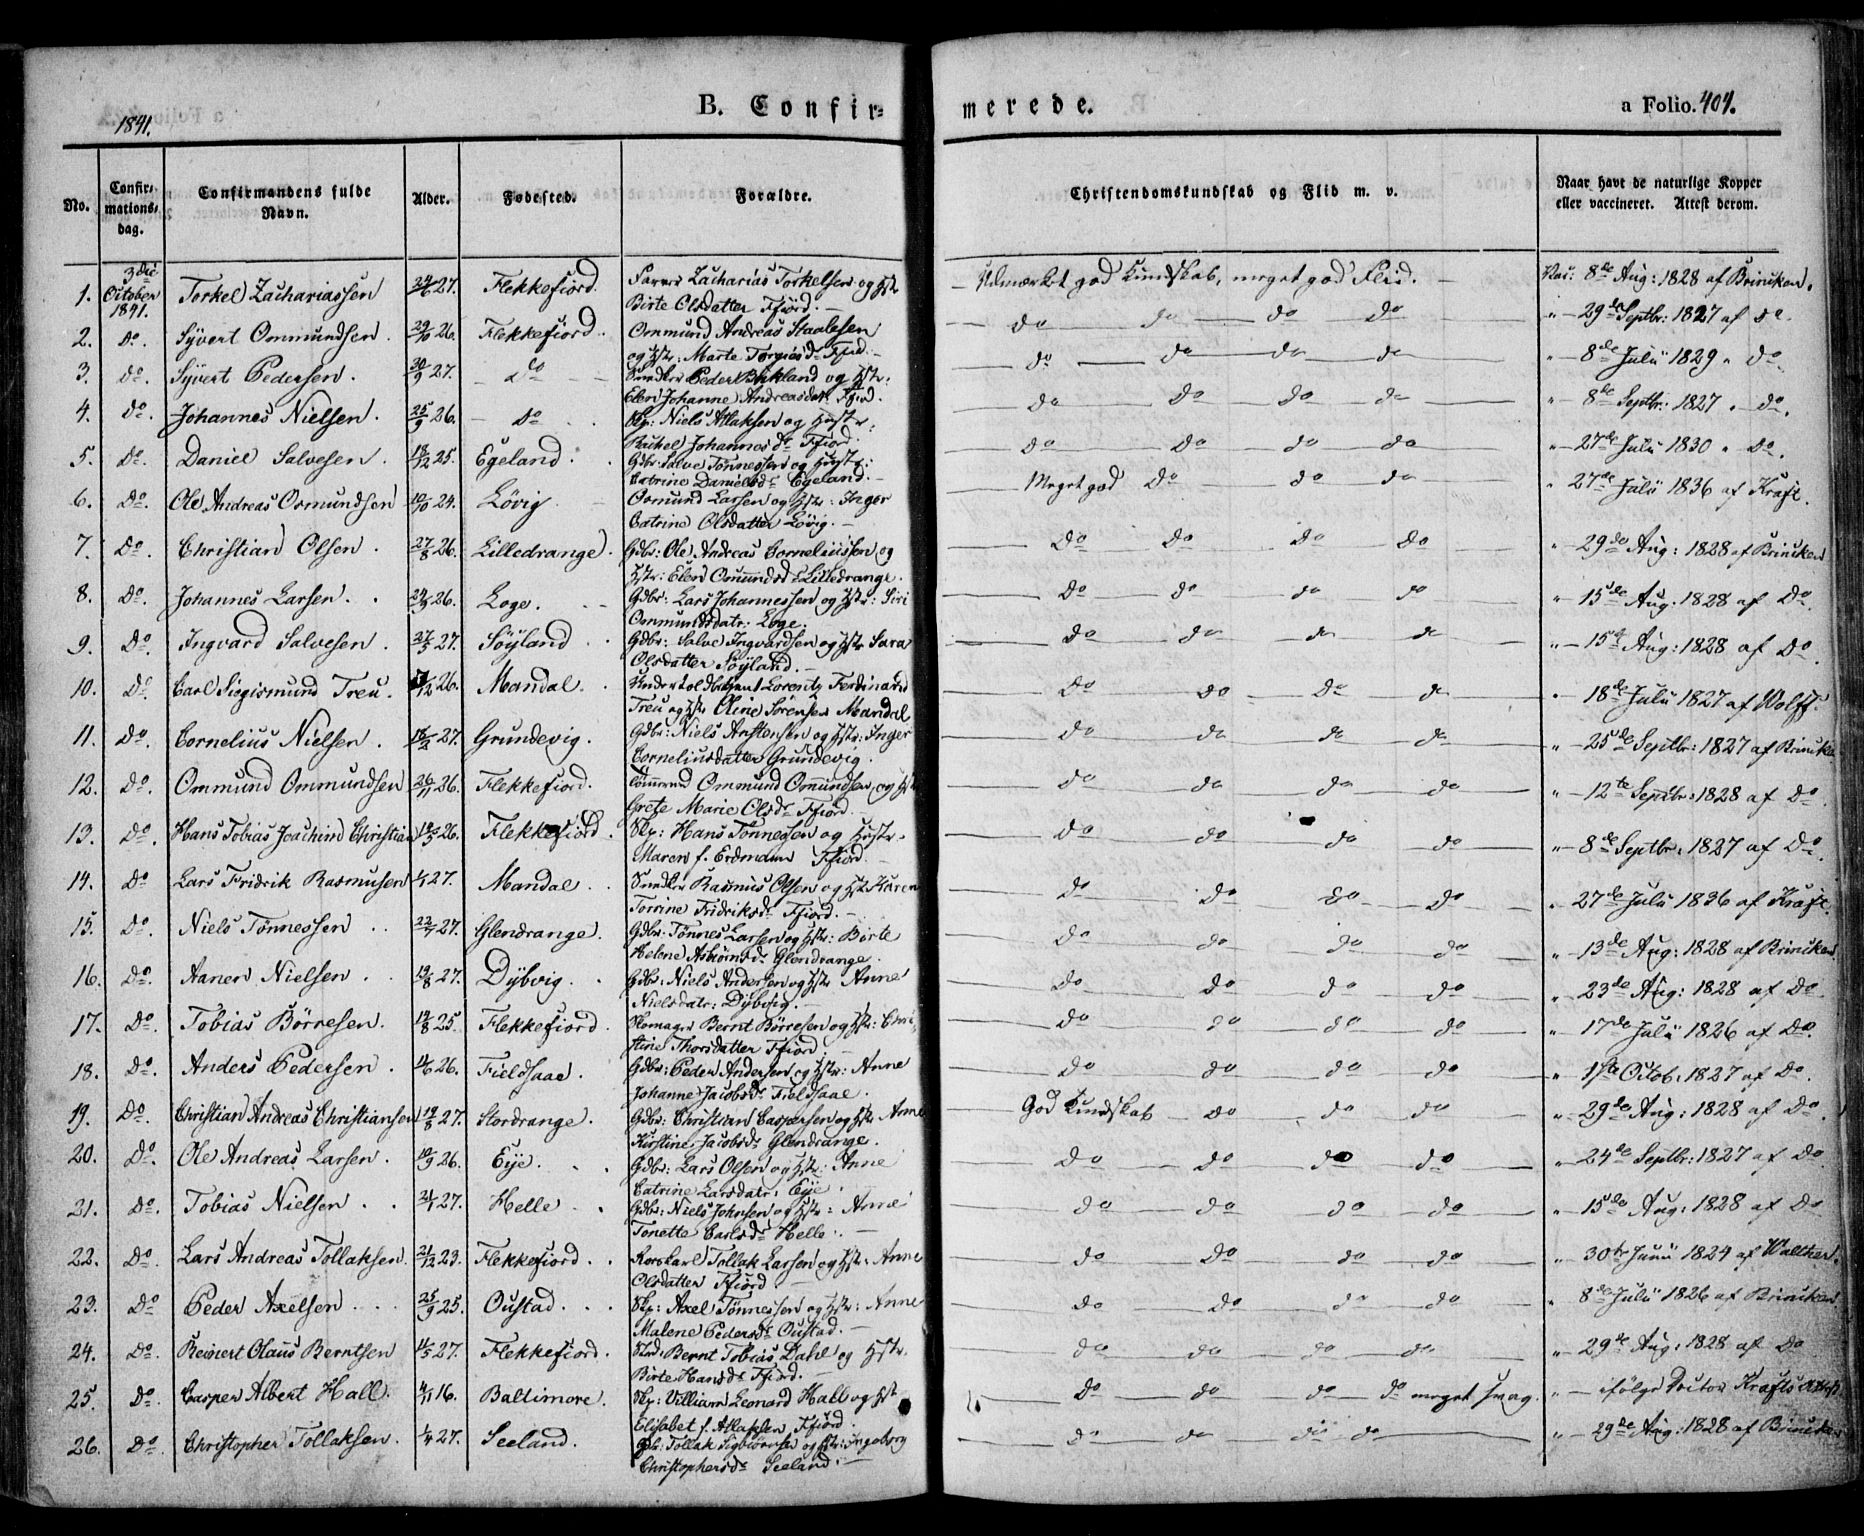 1841.
B. Confir-
merede.
a Folio. 404.
No.
Confirmationsdag.
Confirmandens fulde Navn.
Alder.
Fødested.
Forældre.
Christendomskundskab og Flid m. v.
Naar havt de naturlige Kopper
eller vaccineret. Attest derom.
1. 3die October 1841. Torkel Zachariassen 24/6 27. Flekkefiord. Farver Zacharias Torkelsen og Hst Birte Olsdatter Ffiord. — Udmærket god Kundskab, meget god Flid. — Vac: 8de Aug: 1828 af Brincken.
2. Do. Syvert Ommundsen. 29/10 26. Flekkefiord. Ommund Andreas Staalesen og Hstr: Marte Torgiusdr Ffiord. — do do do do " 29de Septbr: 1827 af do.
3. do. Syvert Pedersen. 30/9 27. — do — Snedker Peder Birkland og Hstr: Elen Johanne Andreasdatr Ffiord. do do do do " 8de Julii 1829 " do
4. do. Johannes Nielsen. 25/9 26. — do Skp: Niels Atlaksen og Hustr: Rachel Johannesdr Ffiord. do do do do " 8de Septbr: 1827 " do.
5. Do. Daniel Salvesen. 18/12 25. Egeland. Gdbr: Salve Tønnessen og Hustr: Catrine Danielsdr Egeland. do do do do " 27de Julii 1830 " do.
6. Do. Ole Andreas Osmundsen 10/10 24. Løvig. Osmund Larsen og Hstr: Inger Catrine Olsdatter Løvig. — Meget god do do do " 27de Julii 1836 af Kraft.
7. Do. Christian Olsen. 27/8 26. Lilledrange. Gdbr: Ole Andreas Corneliussen og Hstr: Elen Omundsdr Lilledrange. Do do do do " 29de Aug: 1828 af Brincken
8. Do. Johannes Larsen. 26. Loge. Gdbr: Lars Johannessen og Hstr: Siri Ommundsdatr: Loge. do do do do " 15de Aug. 1828 af Do.
9. Do. Ingvard Salvesen. 27/5 27. Søyland Gdbr: Salve Ingvardsen og Hstr Sara Olsdatter Søyland. — do do do do " 15de Aug: 1828 af Do
10. Do. Carl Siegismund Treu. /12 26. Mandal. Undertoldbetjent Lorentz Ferdinand Treu og Hstr Oline Sørensen Mandal do do do do " 18de Julii 1827 af Wolff.
11. Do. Cornelius Nielsen. 16/2 27. Grundevig. Gdbr: Niels Anstensen og Hstr: Inger Corneliusdatter Grundevig. do do do do " 25de Septbr: 1827 af Brincken
12. Do. Ommund Ommundsen 26/11 26. Flekkefiord. Ommund Omundsen og Hst Grete Marie Olsdr Ffiord. do do do do " 12te Septbr: 1828 af Do.
13. Do. Hans Tobias Joachim Christian 16/5 26. Flekkefiord. Skp: Hans Tønnessen og Hustr. Maren f. Erdmann Ffiord. do do do do " 8de Septbr: 1827 af Do.
14. Do Lars Fridrik Rasmusen 4/1 27. Mandal. Snedker Rasmus Olsen og Hstr Karen Torrine Fridriksdr Ffiord. — do do do do " 27de Julii 1836 af Kraft.
15. Do. Niels Tønnessen 22/7 27. Glendrange. Gdbr: Tønnes Larsen og Hstr: Birte Helene Asbiørnsdr Glendrange. do do do do " 13de Aug: 1828 af Brincken
16. Do. Aanen Nielsen. 19/8 27. Dybvig. Gdbr: Niels Andersen og Hstr Anne Nielsdatr: Dybvig. do do do do " 23de Aug: 1828 af Do
17. Do. Tobias Børresen. 19/8 25. Flekkefiord. Skomager Bernt Børresen og Hstr: Christine Thorsdatter Ffiord. do do do do " 17de Julii 1826 af Do.
18. Do. Anders Pedersen. 14/6 26. Fieldsaae. Gdbr: Peder Andersen og Hstr: Anne Johanne Jacobsdr Fieldsaae. do do do do " 17de Octob: 1827 af Do.
19. Do. Christian Andreas Christiansen 19/8 27. Stordrange. Gdbr: Christian Caspersen og Hstr Anne Kirstine Jacobsdr Glendrange. God Kundskab do do do " 29de Aug: 1828 af Do.
20. Do. Ole Andreas Larsen. 10/9 26. Eye. Gdbr: Lars Olsen og Hstr: Anne Catrine Larsdatr: Eye. do do do do " 24de Septbr: 1827 af do
21. Do. Tobias Nielsen. 21/1 27. Helle. Gdbr: Niels Johnsen og Hstr: Anne Tonette Carlsdr Helle. do do do do " 15de Aug: 1828 af Do
22. Do. Lars Andreas Tollaksen. 21/12 23. Flekkefiord. Tollak Larsen og Hstr: Anne Olsdatter Ffiord do do do do " 30te Junii 1824 af Walther.
23. Do Peder Axelsen. 25/9 25. Oustad. Skp: Axel Tønnessen og Hstr: Anne Malene Pedersdr Oustad. — do do do do " 8de Julii 1826 af Brincken
24. Do. Reinert Olaus Berntsen 11/5 27. Flekkefiord. Bernt Tobias Dahl og Hstr. Birte Hansdr Ffiord. do do do do " 29de Aug: 1828 af Do
25. Do. Casper Albert Hall. 4/11 16. Baltimore. Skp: Villiam Leonard Hall og Hst Elisabet f. Atlaksen Ffiord. do do do do meget svag. " ifølge Doctor Krafts Attest
26. Do. Christopher Tollaksen. 1/4 27. Seeland. Gb: Tollak Sigbiørnsen og Hstr: Ingeborg Christophersdr Seeland. do do do do " 29de Aug: 1828 af Brincken